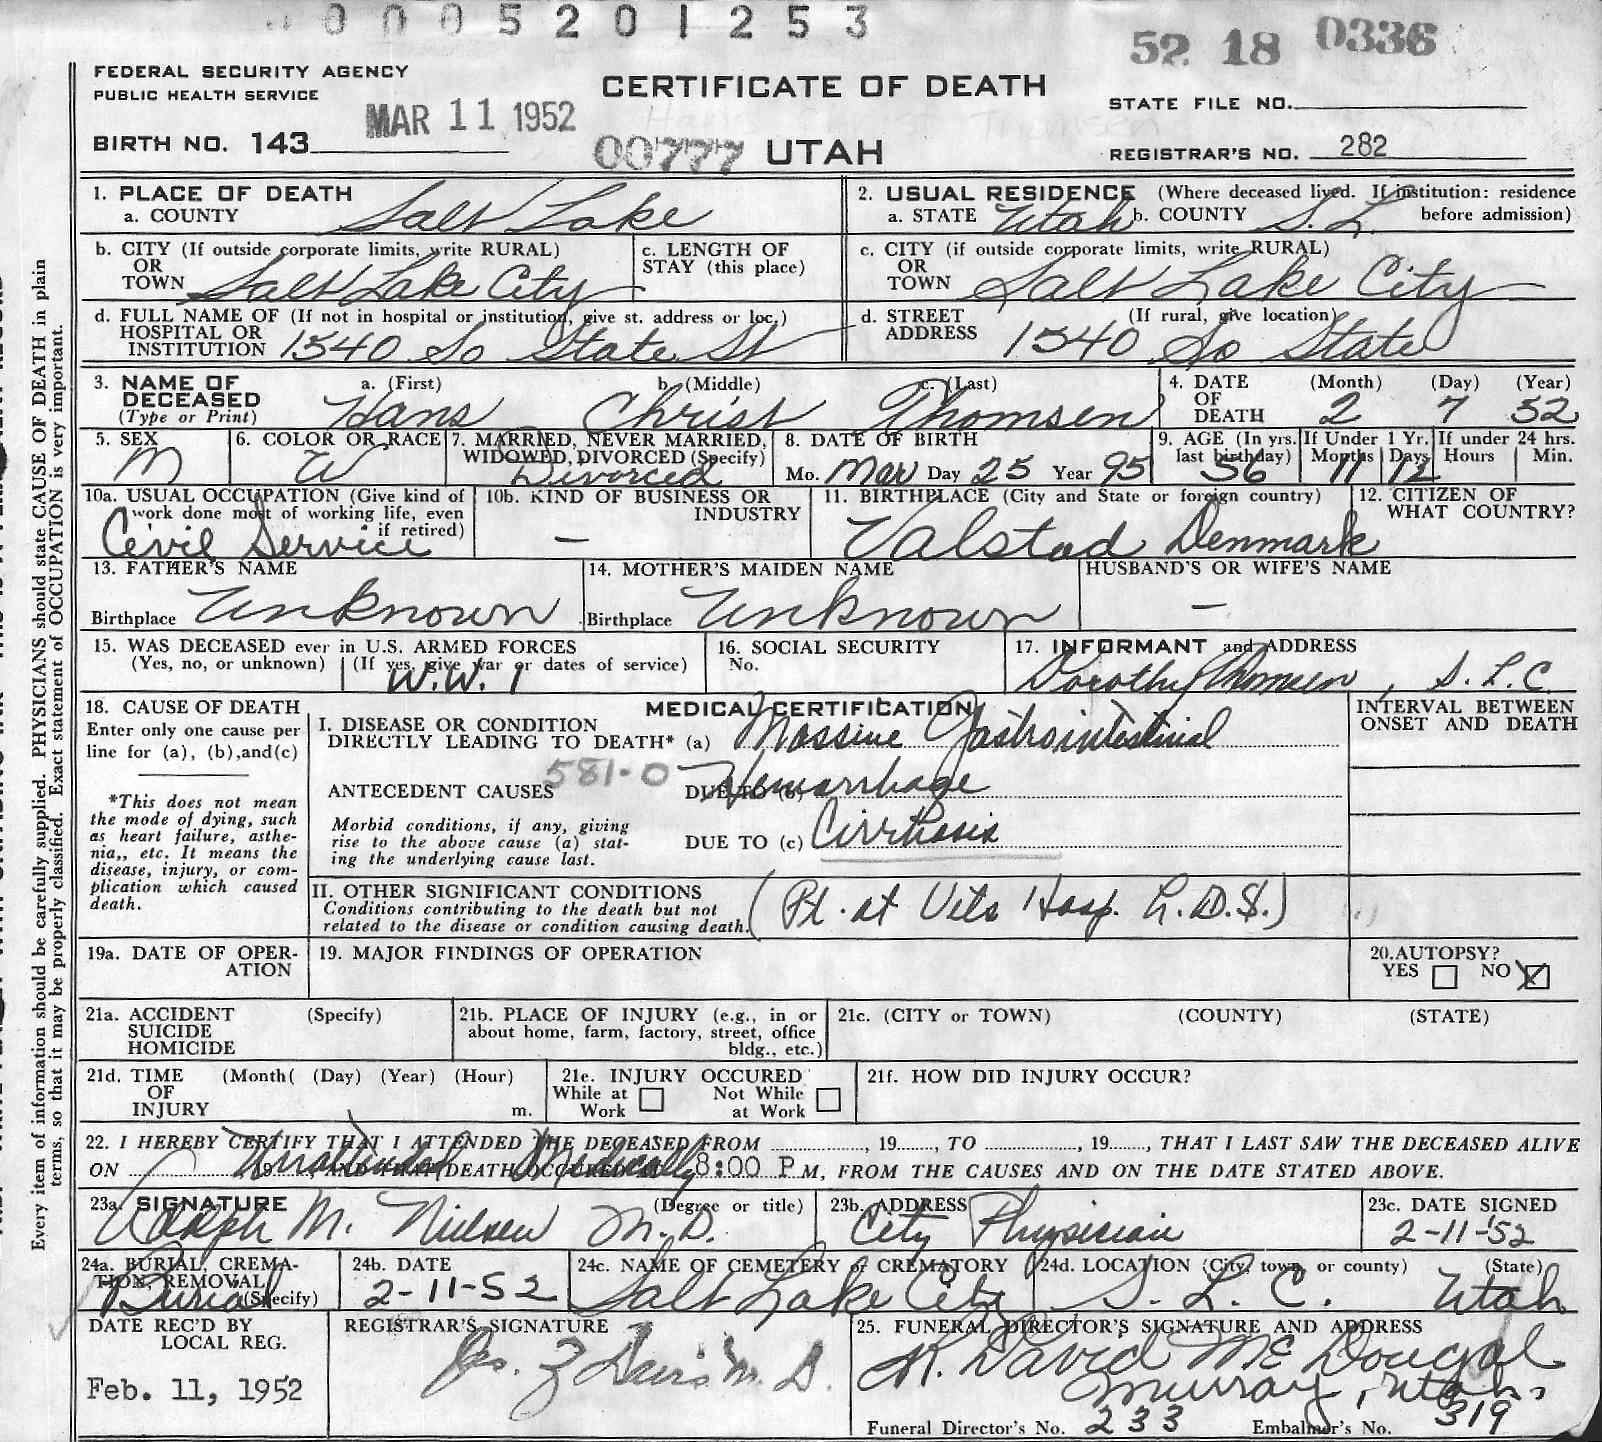 0005201253
52 18 0336
FEDERAL SECURITY AGENCY
PUBLIC HEALTH SERVICE
CERTIFICATE OF DEATH
STATE FILE NO.
MAR 11 1952
BIRTH NO. 143
00777 UTAH
REGISTRAR'S NO. 282
1. PLACE OF DEATH
a. COUNTY Salt Lake
2. USUAL RESIDENCE (Where deceased lived. If institution: residence before admission)
a. STATE Utah b. COUNTY S.L.
b. CITY (If outside corporate limits, write RURAL)
OR
TOWN Salt Lake City
c. LENGTH OF
STAY (this place)
c. CITY (if outside corporate limits, write RURAL)
OR
TOWN Salt Lake City
d. FULL NAME OF (If not in hospital or institution, give st. address or loc.)
HOSPITAL OR
INSTITUTION 1540 So State St
d. STREET (If rural, give location)
ADDRESS 1540 So State
3. NAME OF DECEASED
(Type or Print)
a. (First) Hans
b. (Middle) Christ
c. (Last) Thomsen
4. DATE OF DEATH
(Month) (Day) (Year)
2 7 52
5. SEX
M
6. COLOR OR RACE
W
7. MARRIED, NEVER MARRIED,
WIDOWED, DIVORCED (Specify)
Divorced
8. DATE OF BIRTH
Mo. Mar Day 25 Year 95
9. AGE (In yrs.
last birthday)
56
If Under 1 Yr.
Months Days
11 12
If under 24 hrs.
Hours Min.
10a. USUAL OCCUPATION (Give kind of
work done most of working life, even
if retired)
Civil Service
10b. KIND OF BUSINESS OR
INDUSTRY
–
11. BIRTHPLACE (City and State or foreign country)
Valstad Denmark
12. CITIZEN OF
WHAT COUNTRY?
13. FATHER'S NAME
Birthplace Unknown
14. MOTHER'S MAIDEN NAME
Birthplace Unknown
HUSBAND'S OR WIFE'S NAME
–
15. WAS DECEASED ever in U.S. ARMED FORCES
(Yes, no, or unknown) (If yes, give war or dates of service)
W.W. 1
16. SOCIAL SECURITY
No.
17. INFORMANT and ADDRESS
Dorothy Thomsen, S.L.C.
18. CAUSE OF DEATH
Enter only one cause per
line for (a), (b),and(c)
*This does not mean
the mode of dying, such
as heart failure, asthe-
nia,, etc. It means the
disease, injury, or com-
plication which caused
death.
MEDICAL CERTIFICATION
I. DISEASE OR CONDITION
DIRECTLY LEADING TO DEATH* (a) Massive Gastrointestinal
581-0
ANTECEDENT CAUSES
DUE TO (b) Hemorrhage
Morbid conditions, if any, giving
rise to the above cause (a) stat-
ing the underlying cause last.
DUE TO (c) Cirrhosis
INTERVAL BETWEEN
ONSET AND DEATH
II. OTHER SIGNIFICANT CONDITIONS
Conditions contributing to the death but not
related to the disease or condition causing death.
(Pt. at Vets Hosp. L.D.S.)
19a. DATE OF OPER-
ATION
19. MAJOR FINDINGS OF OPERATION
20.AUTOPSY?
YES NO X
21a. ACCIDENT (Specify)
SUICIDE
HOMICIDE
21b. PLACE OF INJURY (e.g., in or
about home, farm, factory, street, office
bldg., etc.)
21c. (CITY or TOWN) (COUNTY) (STATE)
21d. TIME (Month( (Day) (Year) (Hour)
OF
INJURY m.
21e. INJURY OCCURED
While at Work
Not While at Work
21f. HOW DID INJURY OCCUR?
22. I HEREBY CERTIFY THAT I ATTENDED THE DECEASED FROM , 19 , TO , 19 , THAT I LAST SAW THE DECEASED ALIVE
ON , 19 , AND THAT DEATH OCCURED AT 8:00 P M, FROM THE CAUSES AND ON THE DATE STATED ABOVE.
Unattended Medically
23a. SIGNATURE (Degree or title)
Adolph M. Nielsen M.D.
23b. ADDRESS
City Physician
23c. DATE SIGNED
2-11-'52
24a. BURIAL, CREMA-
TION, REMOVAL
(Specify)
Burial
24b. DATE
2-11-52
24c. NAME OF CEMETERY or CREMATORY
Salt Lake City
24d. LOCATION (City, town, or county) (State)
S. L. C. Utah
DATE REC'D BY
LOCAL REG.
Feb. 11, 1952
REGISTRAR'S SIGNATURE
Jas. Z Davis M.D.
25. FUNERAL DIRECTOR'S SIGNATURE AND ADDRESS
K. David McDougal
Murray, Utah
Funeral Director's No. 233 Embalmer's No. 319
Every item of information should be carefully supplied. PHYSICIANS should state CAUSE OF DEATH in plain
terms, so that it may be properly classified. Exact statement of OCCUPATION is very important.